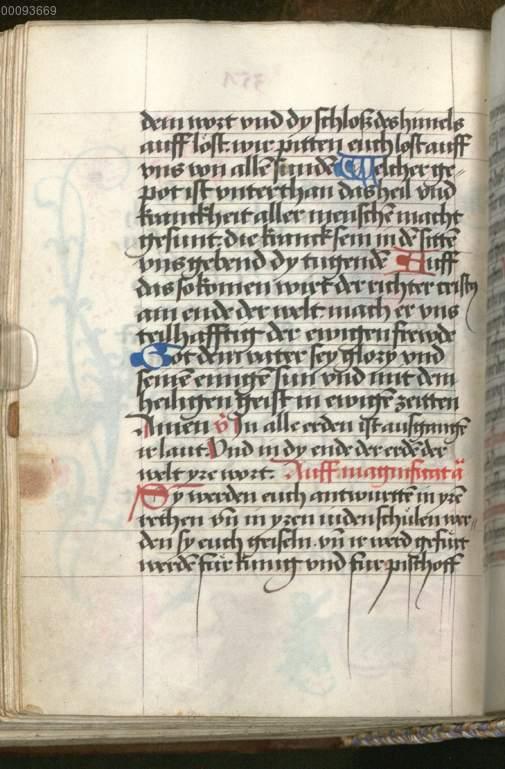 00093669
dem wort vnd dy schloß des himels
auff löst. wir pitten euch löst auff
vns von allē sundē Welcher ge-
pot ist vnterthan das heil vnd
kranckheit aller menschē macht
gesunt. die kranck sein in dē sittē
vns gebend dy tugendē Auff
das so komen wirt der richter cristus
am ende der welt mach er vns
teilhafftig der ewigen frewde
Got dem vater sey glory vnd
seinē einigē sun vnd mit dem
heiligen geist in ewigē zeitten
Amen v̄ In alle erden ist aufgangē
ir laut. Vnd in dy ende der erdē der
welt yre wort. Auff magnificat ā
Sy werden euch antwurttē in yrē
rethen vn̄ in yren iudenschulen wer-
den sy euch geiseln. vn̄ ir werd gefürt
werdē für kunig vnd für pischoff